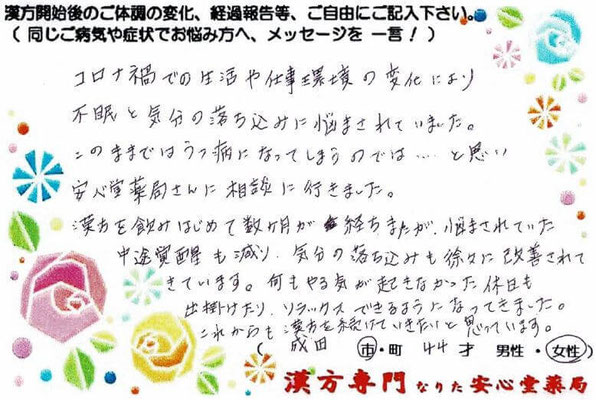 漢方開始後のご体調の変化、経過報告等、ご自由にご記入下さい。
（同じご病気や症状でお悩み方へ、メッセージを一言！）
コロナ禍での生活や仕事環境の変化により
不眠と気分の落ち込みに悩まされていました。
このままではうつ病になってしまうのでは…と思い
安心堂薬局さんに相談に行きました。
漢方を飲みはじめて数ヶ月が経ちまたが、悩まされていた
中途覚醒も減り、気分の落ち込みも徐々に改善されて
きています。何もやる気が起きなかった休日も
出掛けたり、リラックスできるようになってきました。
これからも漢方を続けていきたいと思っています。
（成田 市・町 44才 男性・女性）
漢方専門なりた安心堂薬局